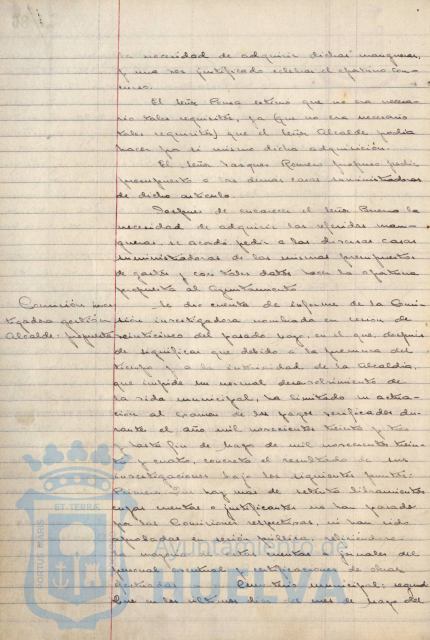 la necesidad de adquirir dichas mangueras,
y una vez justificado celebrar el oportuno con-
curso.
El señor Ponsa estimo que no era necesa-
rio tales requisitos, ya (que no era necesario
tales requisitos) que el señor Alcalde podia
hacer por si mismo dicha adquisición.
El señor Vazquez Romero propuso pedir
presupuesto a las demas casas suministradoras
de dicho articulo.
Despues de encarecer el señor Bueno la
necesidad de adquirir las referidas man-
gueras, se acordó pedir a las diversas casas
suministradoras de las mismas presupuestos
de gastos y con tales datos hacer la oportuna
propuesta al Ayuntamiento
Comisión inves-
tigadora gestión
Alcalde: propuesta
Se dio cuenta de informe de la Comi-
sión investigadora nombrada en sesion de
veinticinco del pasado mayo, en el que, despues
de significar que debido a la premura del
tiempo y a la interinidad de la Alcaldia,
que impide un normal desenvolvimiento de
la vida municipal, ha limitado su actua-
cion al examen de los pagos verificados du-
rante el año mil novecientos treinta y tres
y hasta fin de Mayo de mil novecientos trein-
ta y cuatro, concreta el resultado de sus
investigaciones bajo los siguientes puntos:
Primero: Que hay mas de setenta libramientos
cuyas cuentas o justificantes no han pasado
por las Comisiones respectivas, ni han sido
aprobadas en sesión pública, refiriendose
la mayor a cuentas de jornales del
personal eventual y certificaciones de obras
Cementerio municipal; segundo
Que en los últimos dias del mes de Mayo del
FORTUS MARIS
ET TERRA
Ayuntamiento de
HUELVA